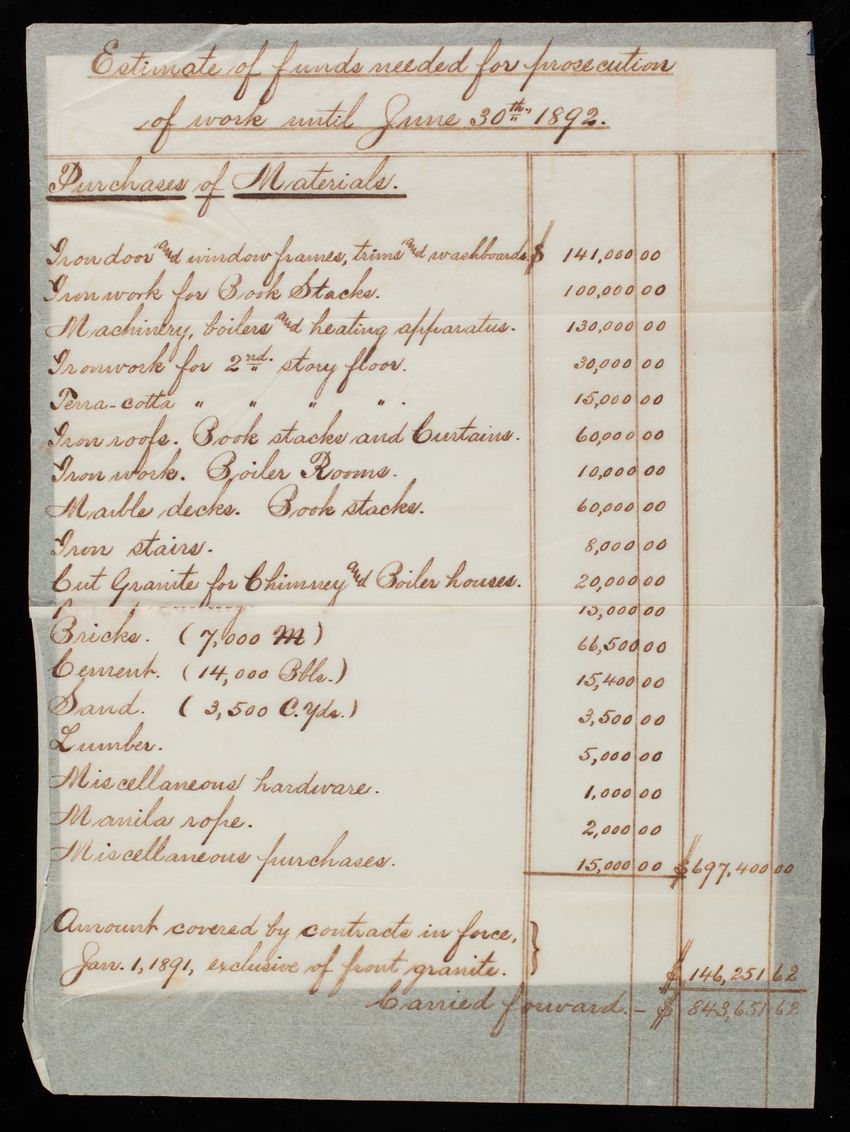 Estimate of funds needed for prosecution
of work until June 30th 1892.
Purchases of Materials.
Iron door and window frames, trims and washboards. $ 141,000 00
Iron work for Book Stacks. 100,000 00
Machinery, boilers and heating apparatus. 130,000 00
Ironwork for 2nd. story floor. 30,000 00
Terra-cotta " " " " . 15,000 00
Iron roofs. Book stacks and Curtains. 60,000 00
Iron work. Boiler Rooms. 10,000 00
Marble decks. Book stacks. 60,000 00
Iron stairs. 8,000 00
Cut Granite for Chimney and Boiler houses. 20,000 00
15,000 00
Bricks. (7,000 M) 66,500 00
Cement. (14,000 Bbls.) 15,400 00
Sand. (3,500 C. Yds.) 3,500 00
Lumber. 5,000 00
Miscellaneous hardware. 1,000 00
Manila rope. 2,000 00
Miscellaneous purchases. 15,000 00 $697,400 00
Amount covered by contracts in force,
Jan. 1, 1891, exclusive of front granite. } $ 146,251 62
Carried forward. - $ 843,651 62